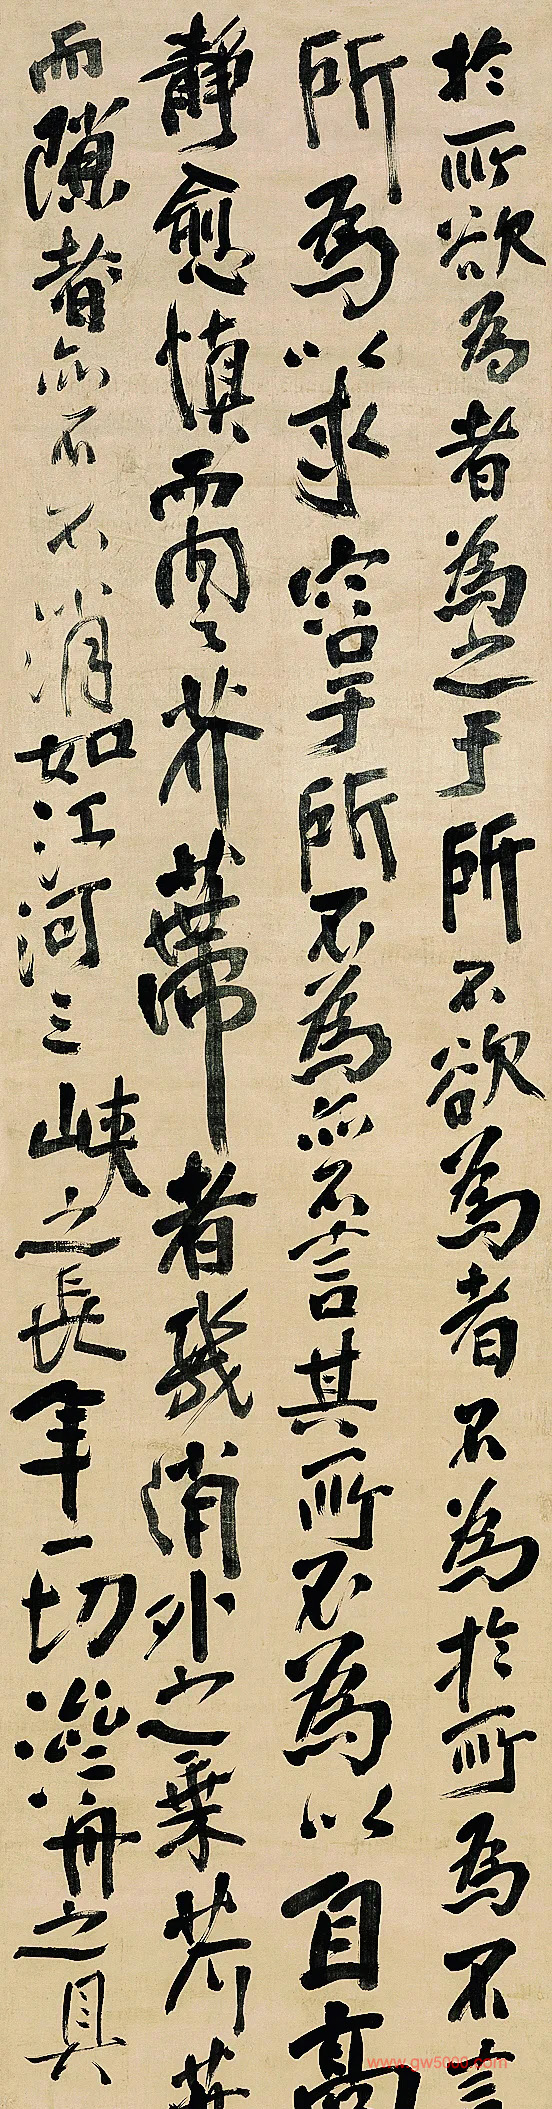 於所欲為者為之于所不欲為者不為於所為不言
所為以求容于所不為亦不言其所不為以自高
靜愈慎而內之芥蔕者幾消外之乘芥
而隙者亦不不消如江河三峽之長年一切舟之具
www.gw5000.com